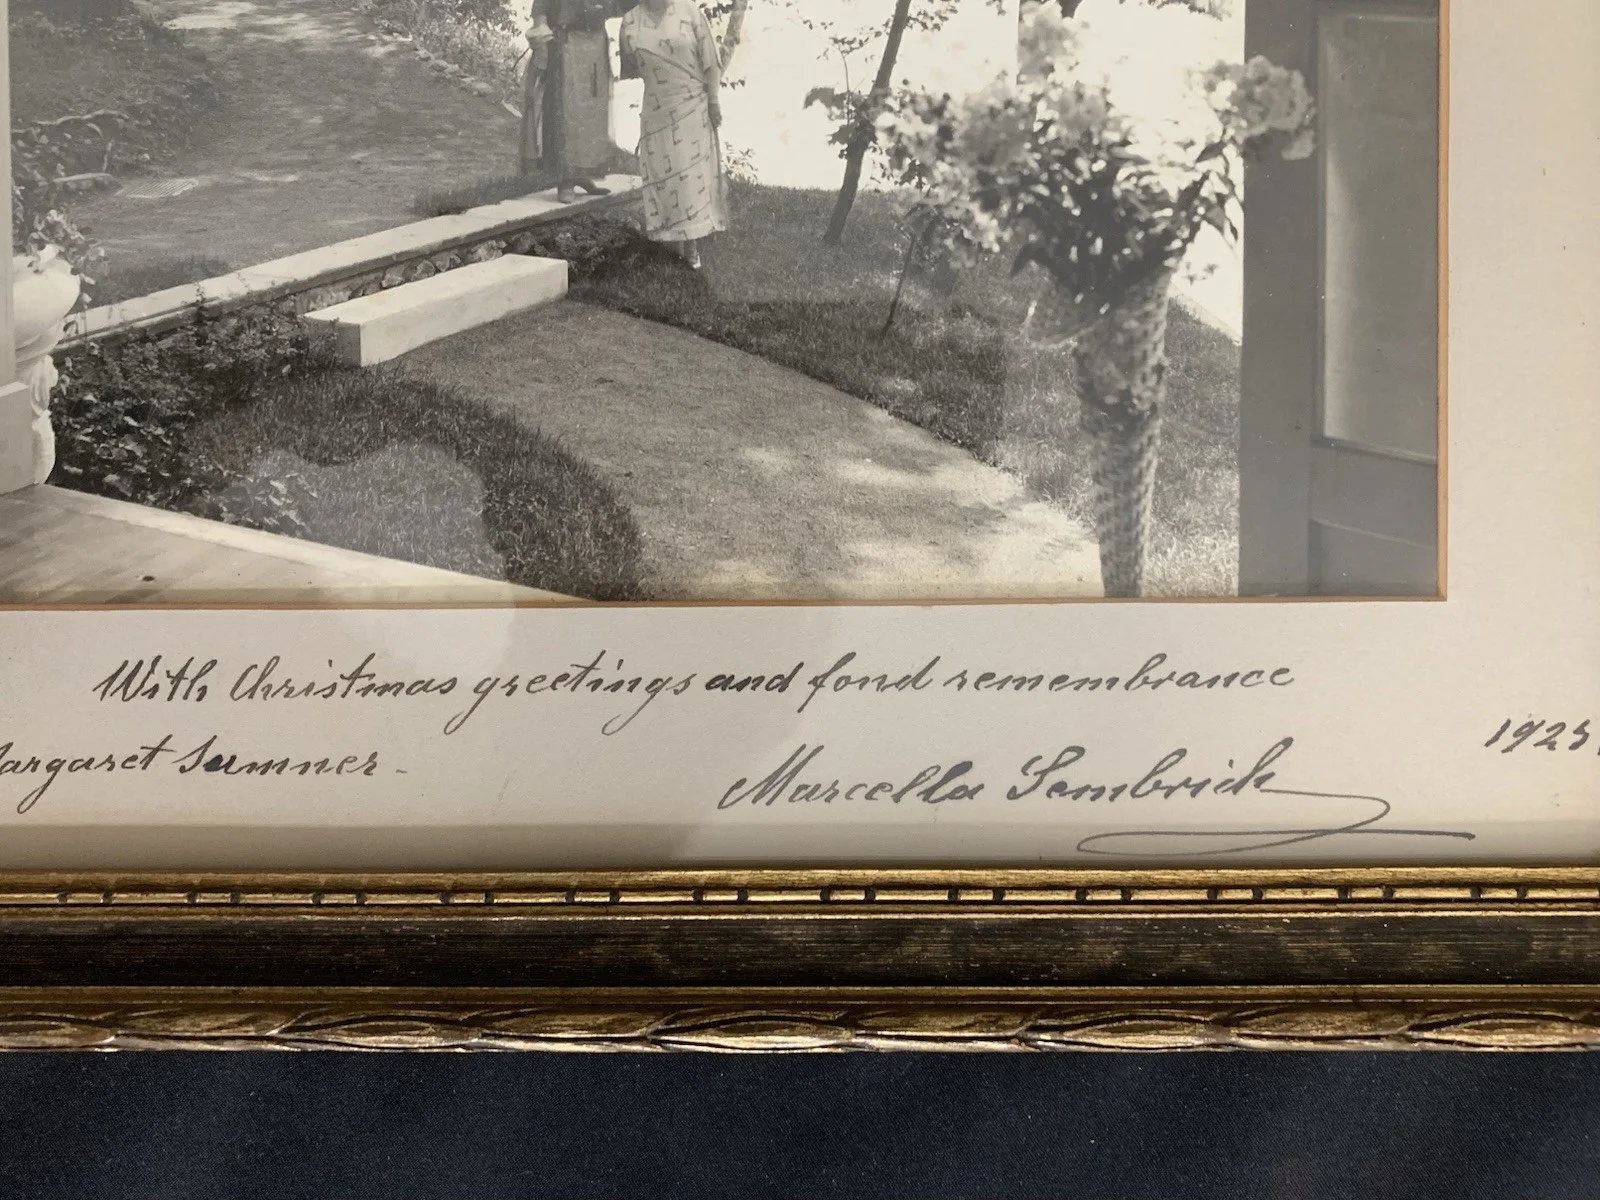 With Christmas greetings and fond remembrance
Margaret Sumner.
Marcella Sembrich